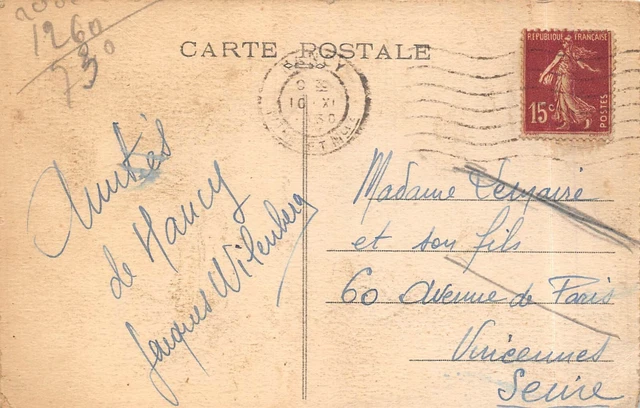 1260
730
CARTE POSTALE
RÉPUBLIQUE FRANÇAISE
15c
POSTES
NANCY
10 XI
Amitiés
de Nancy
Jacques Wilenberg
Madame Lemaire
et son fils
60 Avenue de Paris
Vincennes
Seine